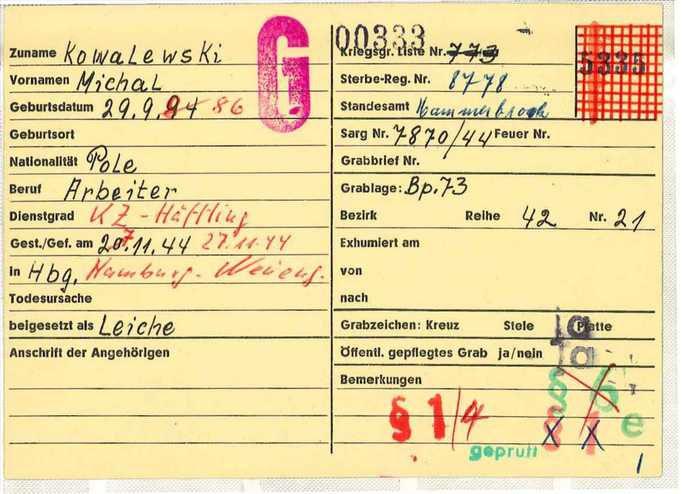 Zuname Kowalewski
Vornamen Michal
Geburtsdatum 29.9.94 86
Geburtsort
Nationalität Pole
Beruf Arbeiter
Dienstgrad KZ-Häftling
Gest./Gef. am 20.11.44 27.11.44
in Hbg. Hamburg-
Todesursache
beigesetzt als Leiche
Anschrift der Angehörigen
G
00333
Kriegsgr. Liste Nr. 773
5335
Sterbe-Reg. Nr. 8778
Standesamt Hammerbrook
Sarg Nr. 7870/44 Feuer Nr.
Grabbrief Nr.
Grablage: Bp. 73
Bezirk Reihe 42 Nr. 21
Exhumiert am
von
nach
Grabzeichen: Kreuz Stele Platte
ja
Öffentl. gepflegtes Grab ja/nein
ja
Bemerkungen
§ 6 e
§ 1/4 § 1
X X
geprüft
1